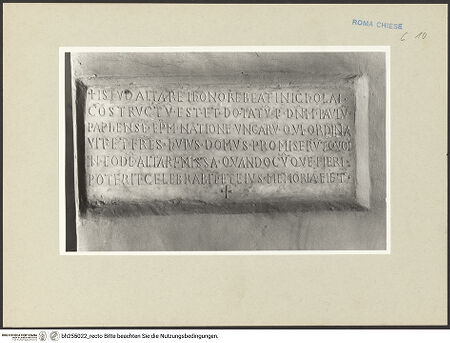 ROMA CHIESE
C 10
+ ISTUD ALTARE I HONORE BEATI NICHOLAI
COSTRUCTU EST ET DOTATU P DNM PAULU
PAPIENSE EPM NATIONE UNGARU QUI ORDINA
VIT ET FRES HUIUS DOMUS PROMISERUT QUOD
N EODE ALTARE MISSA QUANDOCUQUE FIERI
POTERIT CELEBRABIT ET EIUS MEMORIA FIET
+
bh255022_recto Bitte beachten Sie die Nutzungsbedingungen.